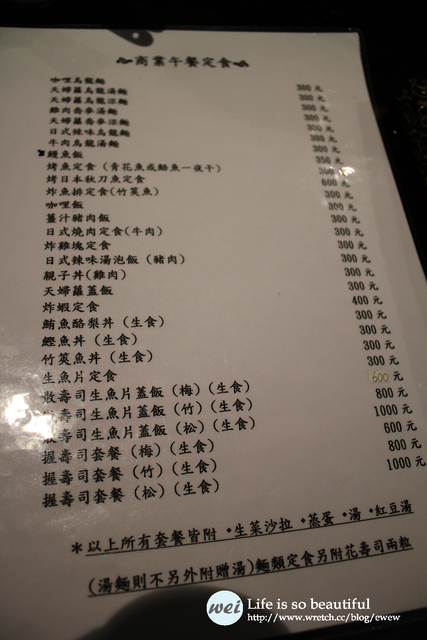 商業午餐定食
咖哩烏龍麵 300元
天婦羅烏龍湯麵 300元
天婦羅烏龍涼麵 300元
雞肉蕎麥湯麵 300元
天婦羅蕎麥涼麵 300元
日式辣味烏龍麵 300元
牛肉烏龍湯麵 350元
鰻魚飯 600元
烤魚定食（青花魚或鯖魚一夜干） 300元
烤日本秋刀魚定食 300元
炸魚排定食(竹筴魚) 300元
咖哩飯 300元
薑汁豬肉飯 300元
日式燒肉定食(牛肉) 300元
炸雞塊定食 300元
日式辣味湯泡飯（豬肉） 300元
親子丼(雞肉) 300元
天婦羅蓋飯 300元
炸蝦定食 400元
鮪魚酪梨丼（生食） 300元
鰹魚丼（生食） 300元
竹筴魚丼（生食） 300元
生魚片定食 300元
散壽司生魚片蓋飯（梅）（生食） 600元
散壽司生魚片蓋飯（竹）（生食） 800元
散壽司生魚片蓋飯（松）（生食） 1000元
握壽司套餐（梅）（生食） 600元
握壽司套餐（竹）（生食） 800元
握壽司套餐（松）（生食） 1000元
*以上所有套餐皆附・生菜沙拉・蒸蛋・湯・紅豆湯
(湯麵則不另外附贈湯)麵類定食另附花壽司兩粒
wei Life is so beautiful
http://www.wretch.cc/blog/ewew